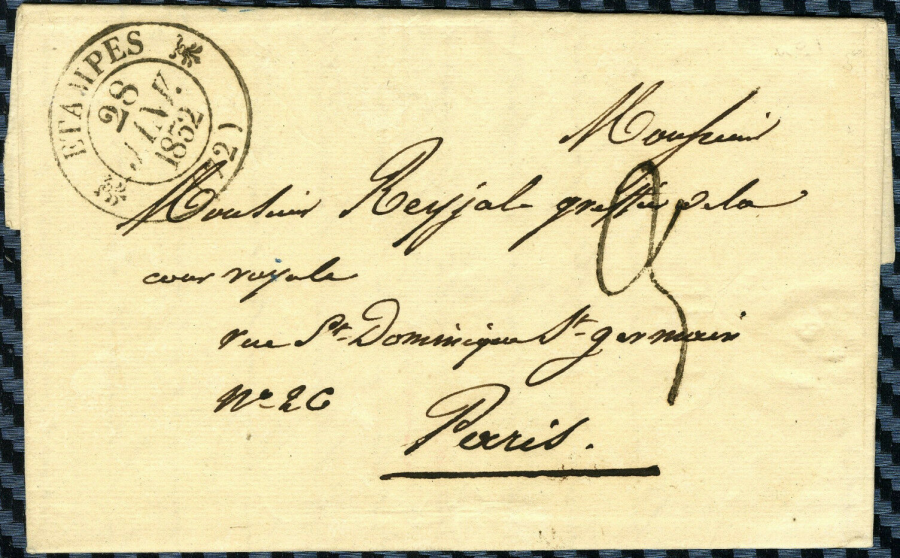 ETAMPES (72)
28
JANV.
1832
Monsieur
Monsieur Reyjal greffier de la
cour royale
rue St- Dominique St- germain
No 26
Paris.